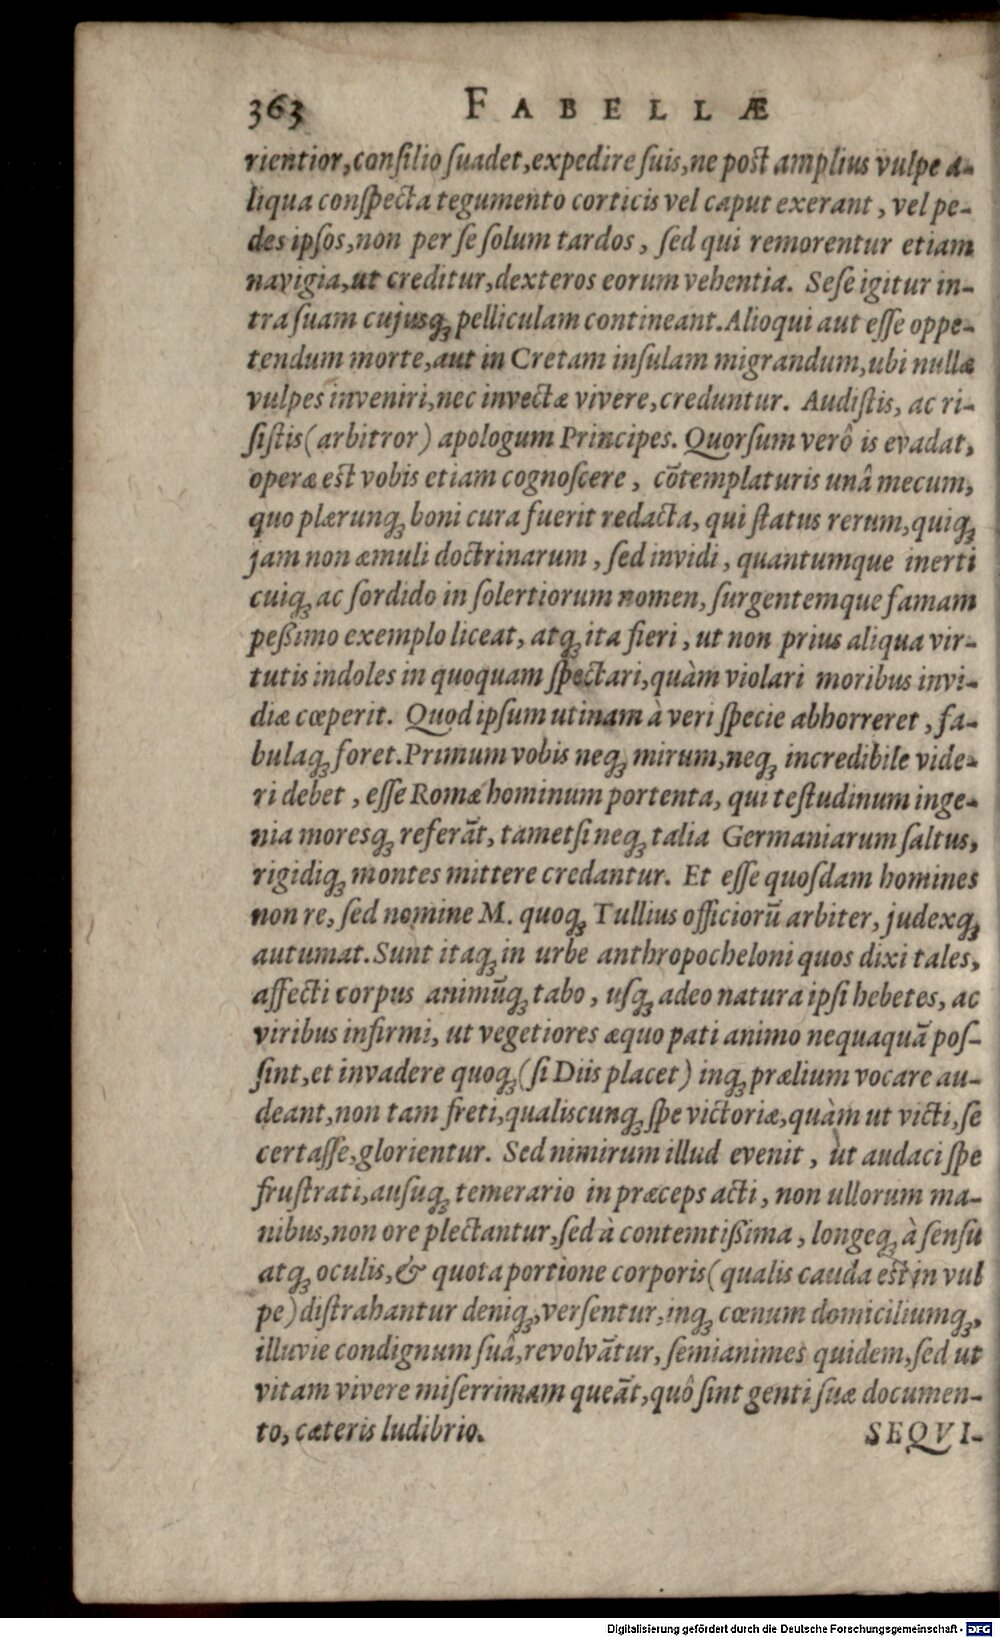 363 FABELLÆ
rientior, conſilio ſuadet, expedire ſuis, ne poſt amplius vulpe a-
liqua conſpecta tegumento corticis vel caput exerant, vel pe-
des ipſos, non per ſe ſolum tardos, ſed qui remorentur etiam
navigia, ut creditur, dexteros eorum vehentia. Seſe igitur in-
tra ſuam cujusqꝫ pelliculam contineant. Alioqui aut eſſe oppe-
tendum morte, aut in Cretam inſulam migrandum, ubi nullæ
vulpes inveniri, nec invectæ vivere, creduntur. Audiſtis, ac ri-
ſiſtis (arbitror) apologum Principes. Quorſum verô is evadat,
operæ eſt vobis etiam cognoſcere, cõtemplaturis unâ mecum,
quo plærunqꝫ boni cura fuerit redacta, qui ſtatus rerum, quiqꝫ
jam non æmuli doctrinarum, ſed invidi, quantumque inerti
cuiqꝫ ac ſordido in ſolertiorum nomen, ſurgentemque famam
peßimo exemplo liceat, atqꝫ ita fieri, ut non prius aliqua vir-
tutis indoles in quoquam ſpectari, quàm violari moribus invi-
diæ cœperit. Quod ipſum utinam à veri ſpecie abhorreret, fa-
bulaqꝫ foret. Primum vobis neqꝫ mirum, neqꝫ incredibile vide-
ri debet, eſſe Romæ hominum portenta, qui teſtudinum inge-
nia moresqꝫ referãt, tametſi neqꝫ talia Germaniarum ſaltus,
rigidiqꝫ montes mittere credantur. Et eſſe quoſdam homines
non re, ſed nomine M. quoqꝫ Tullius officiorũ arbiter, judexqꝫ
autumat. Sunt itaqꝫ in urbe anthropocheloni quos dixi tales,
affecti corpus animũqꝫ tabo, uſqꝫ adeo natura ipſi hebetes, ac
viribus infirmi, ut vegetiores æquo pati animo nequaquã poſ-
ſint, et invadere quoqꝫ (ſi Diis placet) inqꝫ prælium vocare au-
deant, non tam freti, qualiscunqꝫ ſpe victoriæ, quàm ut victi, ſe
certaſſe, glorientur. Sed nimirum illud evenit, ut audaci ſpe
fruſtrati, auſuqꝫ temerario in præceps acti, non ullorum ma-
nibus, non ore plectantur, ſed à contemtißima, longeqꝫ à ſenſu
atqꝫ oculis, & quota portione corporis (qualis cauda eſt in vul
pe) diſtrahantur deniqꝫ, verſentur, inqꝫ cœnum domiciliumqꝫ,
illuvie condignum ſuâ, revolvãtur, ſemianimes quidem, ſed ut
vitam vivere miſerrimam queãt, quô ſint genti ſuæ documen-
to, cæteris ludibrio. SEQVI-
Digitalisierung gefördert durch die Deutsche Forschungsgemeinschaft - DFG